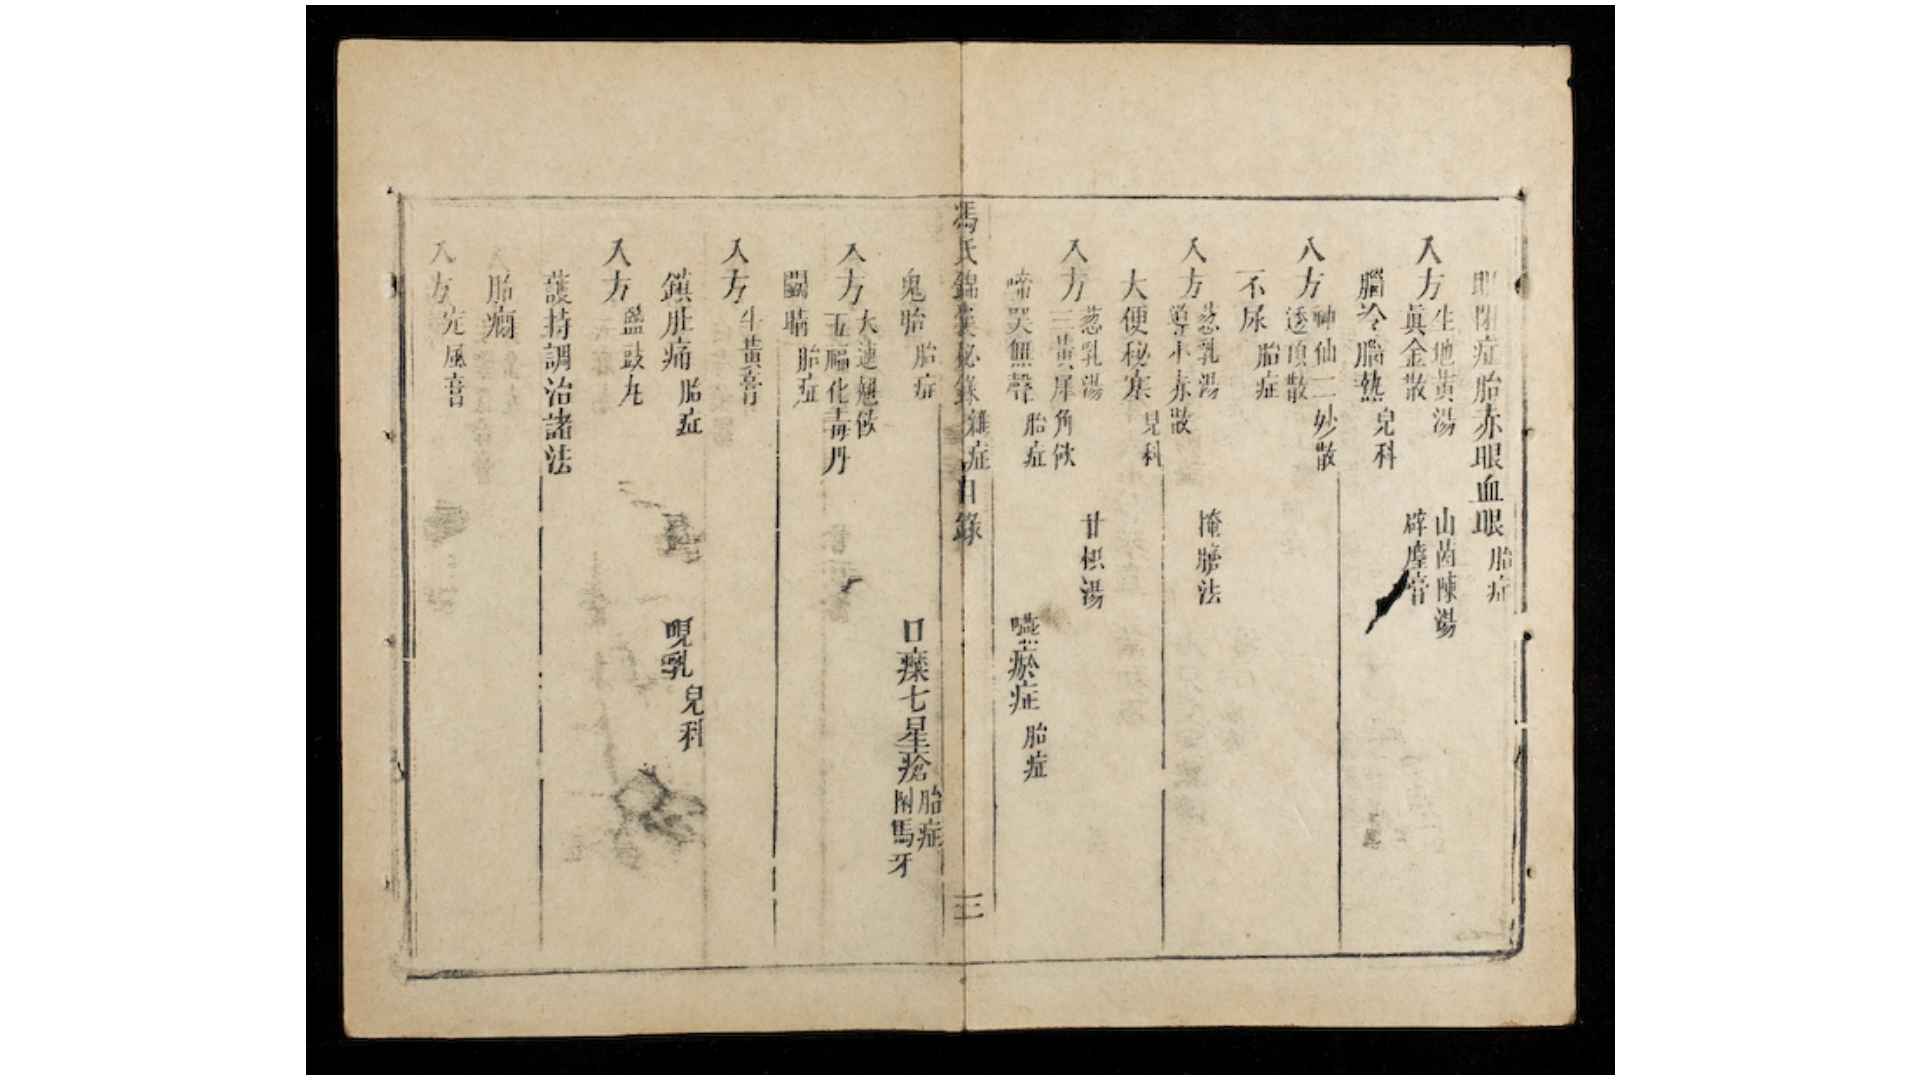 眼閉症胎赤眼血眼 胎症
入方 生地黃湯 山茵陳湯
眞金散 辟塵膏
腦冷腦熱 兒科
入方 神仙二妙散
透頂散
不尿 胎症
入方 葱乳湯 掩臍法
導赤散
大便秘塞 兒科
入方 葱乳湯 甘枳湯
三黃犀角飲
啼哭無聲 胎症 瘀症 胎症
馮氏錦囊秘錄 雜症目錄 三
鬼胎 胎症 口瘡七星瘡 胎症
附馬牙
入方 大連翹飲
五福化毒丹
胎症
入方 牛黃膏
鎮肚痛 胎症 哯乳 兒科
入方 鹽豉丸
護持調治諸法
胎癎
入方